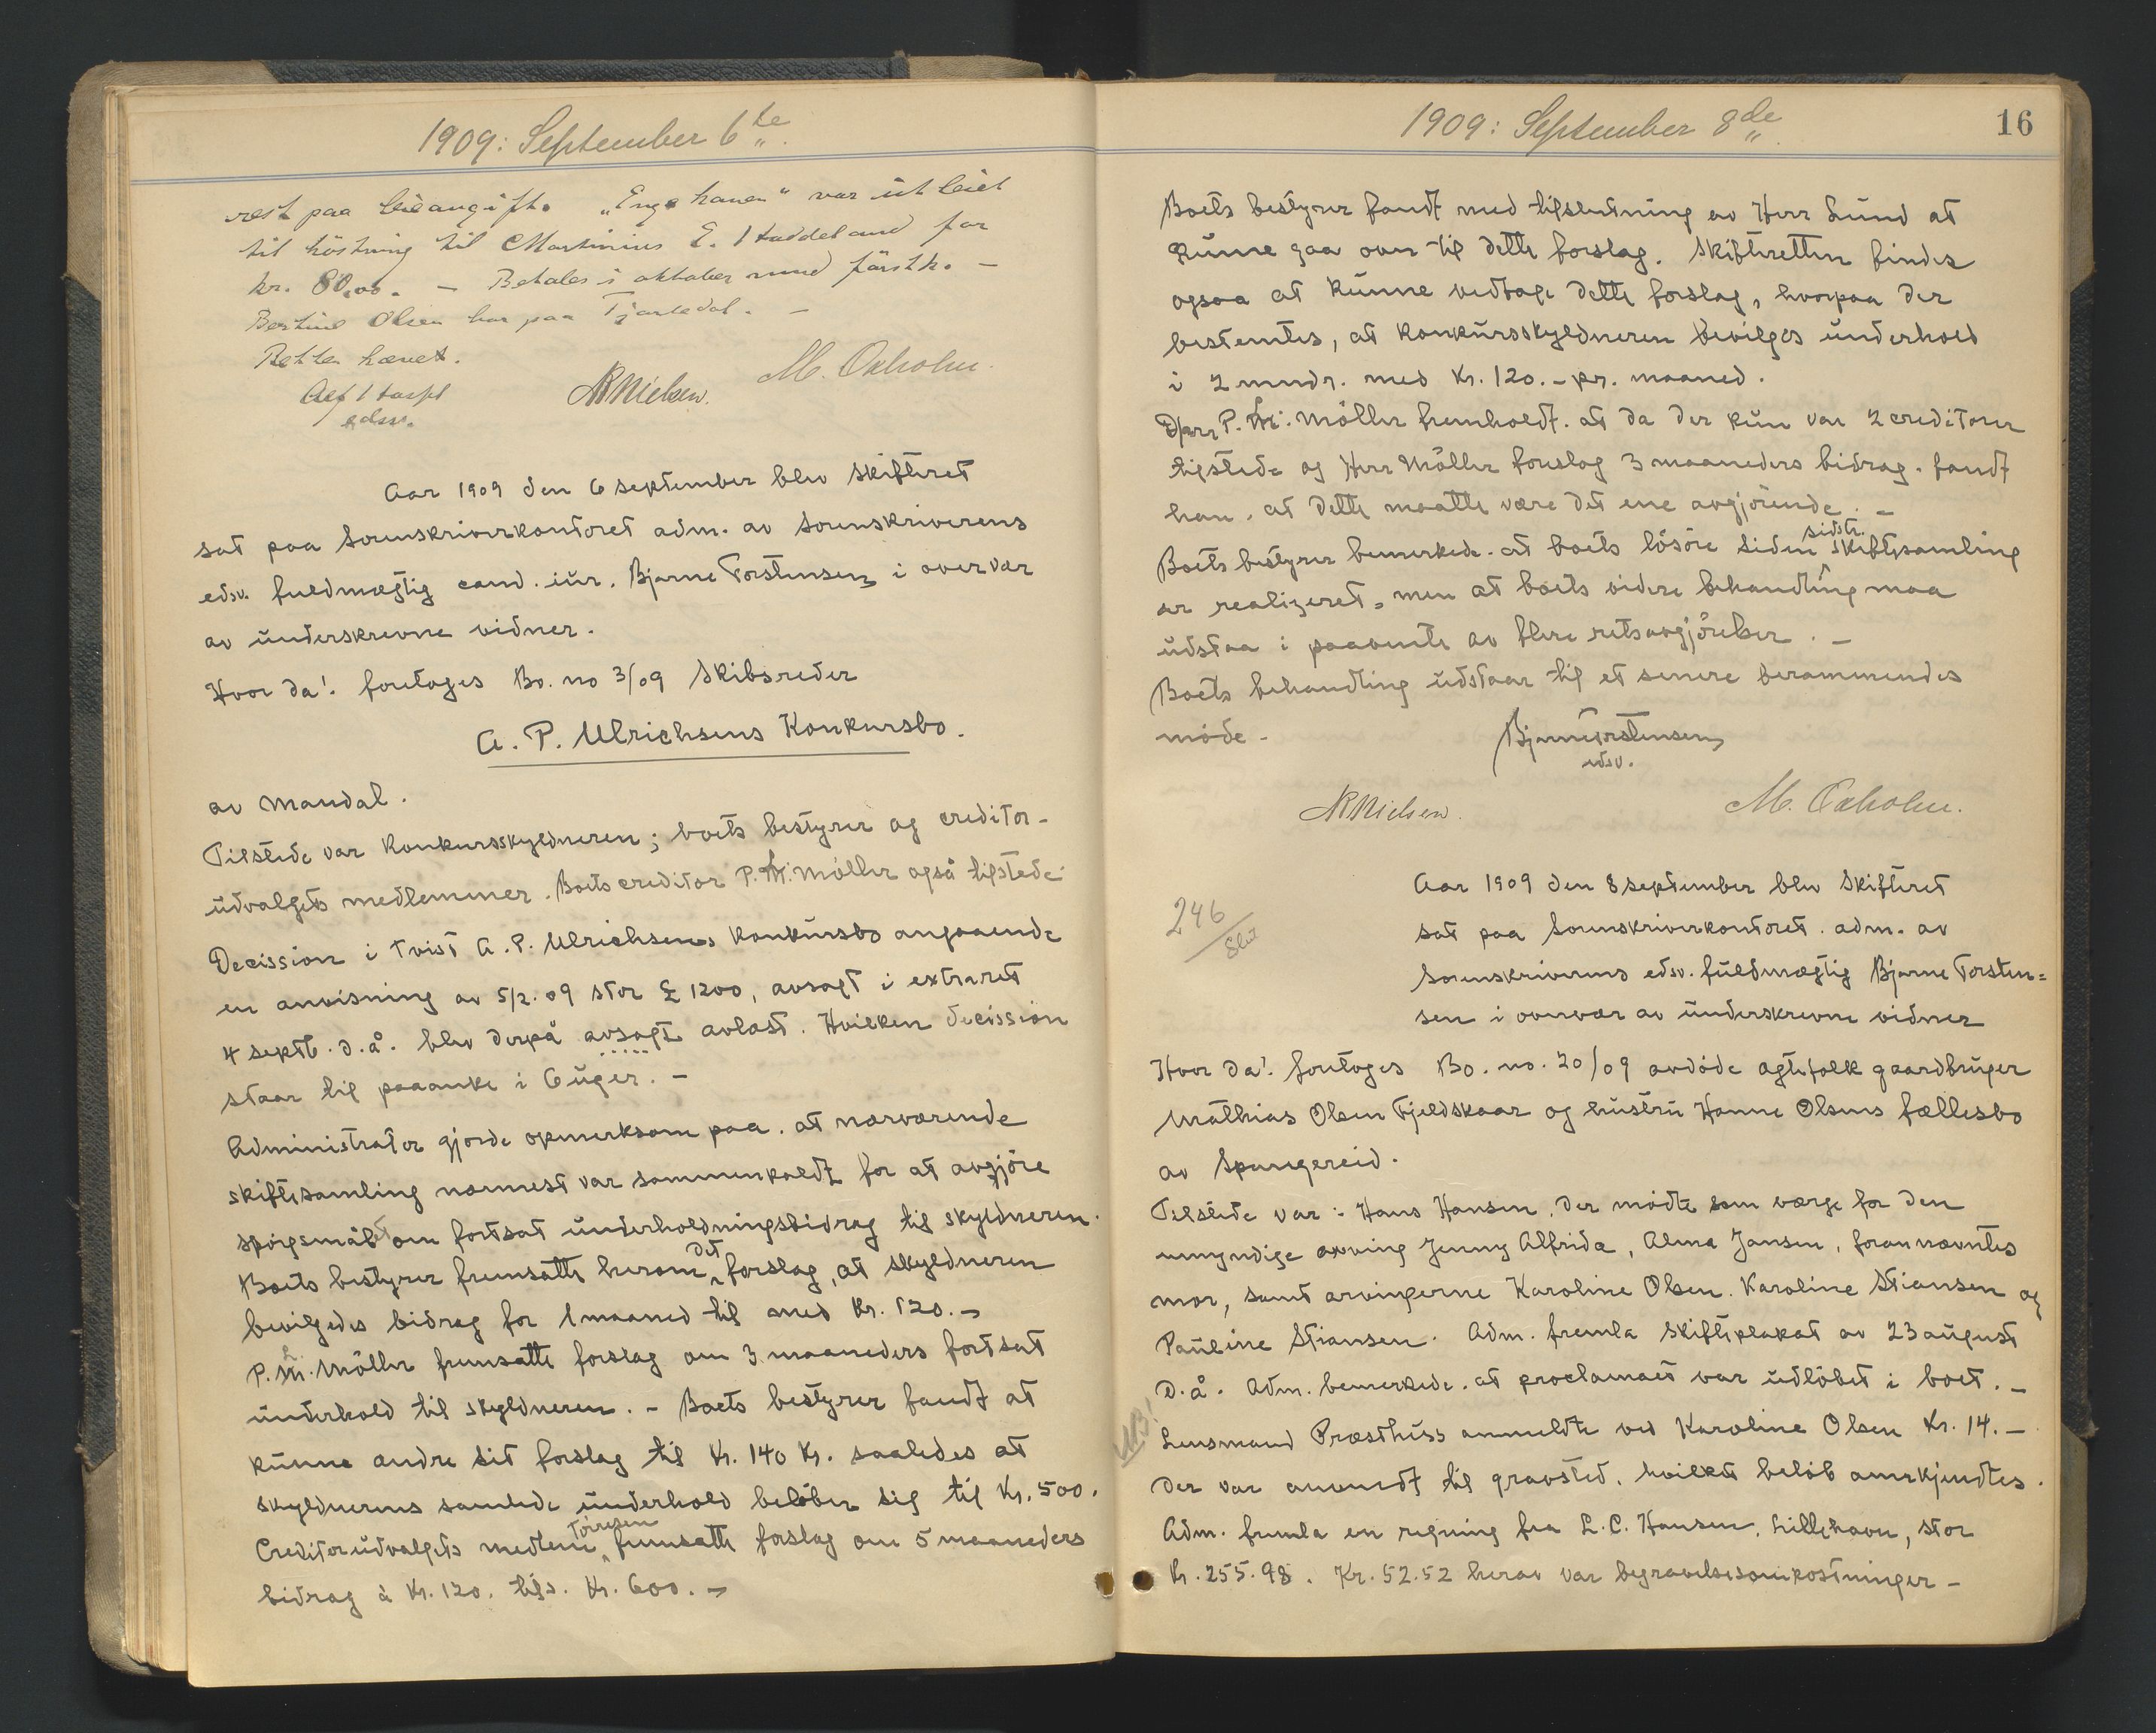 1909: September 6te
rest paa leieavgift. "Engehaven" var ütleiet
til höstning til Martinius E. Staddeland for
kr. 80,00. – Betales i oktober mnd förstk. –
Bertine Olsen bor paa Tjaaledal. –
Retten hævet.
edsv.
NRNielsen. M. Oxholm.
Aar 1909 den 6 september blev Skifteret
sat paa Sorenskriverkontoret adm. av Sorenskriverens
edsv. fuldmægtig cand. iür. Bjarne Torstensen i overvær
av ünderskrevne vidner.
Hvor da! foretoges Bo. no 3/09 Skibsreder
A. P. Ulrichsens Konkursbo.
av Mandal.
Tilstede var Konkursskyldneren; boets bestyrer og creditor-
üdvalgets medlemmer. Boets creditor P. Chr. Möller også tilstede
Decission i tvist A. P. Ulrichsens Konkürsbo angaaende
en anvisning av 5/2.09 stor £ 1200, avsagt i extraret
4 septb. d.å. blev derpå avsagt avlæst. Hvilken decission
staar til paaanke i 6 üger. –
Administrator gjorde opmerksom paa. at nærværende
skiftesamling nærmest var sammenkaldt for at avgjöre
spörgsmålet om fortsat ünderholdningsbidrag til skyldneren.
Boets bestyrer fremsatte herom det forslag, at skyldneren
bevilgedes bidrag for 1 maaned til med Kr. 120.–
P. Chr. Möller fremsatte forslag om 3 maaneders fortsat
ünderhold til skyldneren. – Boets bestyrer fandt at
künne ændre sit forslag til Kr. 140 Kr. saaledes at
skyldnerens samlede ünderhold belöber sig til Kr. 500.
Creditorüdvalgets medlem Törresen fremsatte forslag om 5 maaneders
bidrag à Kr. 120. tils. Kr. 600. –
1909: September 8de
16
Boets bestyrer fandt med tilslutning av Herr Lünd at
künne gaa over til dette forslag. Skifteretten findes
ogsaa at künne vedtage dette forslag, hvorpaa der
bestemtes, at Konkürsskyldneren bevilges ünderhold
i 2 mndr. med Kr. 120.– pr. maaned.
Herr P. Chr. Möller fremholdt. at da der kün var 2 creditorer
tilstede og Herr Möller foreslog 3 maaneders bidrag. fandt
han. at dette maatte være det ene avgjörende. –
Boets bestyrer bemerkede. at boets lösöre siden sidste skiftesamling
er realizeret, men at boets videre behandling maa
üdstaa i paavente av flere retsavgjörelser. –
Boets behandling üdstaar til et senere berammendes
möde –
Bjarne Torstensen
edsv.
NRNielsen. M. Oxholm.
246
Aar 1909 den 8 september blev Skifteret
sat paa Sorenskriverkontoret. adm. av
Sorenskriverens edsv. füldmægtig Bjarne Torsten=
sen i overvær av ünderskrevne vidner
Hvor da! foretoges Bo. no. 20/09 avdöde ægtefolk gaardbrüger
Mathias Olsen Fjeldskaar og hüstrü Hanne Olsens fællesbo
av Spangereid.
Tilstede var: Hans Hansen, der mödte som værge for den
umyndige arving Jenny Alfrida, Alma Jansen, forannævntes
mor, samt arvingerne Karoline Olsen. Karoline Stiansen og
Paüline Stiansen. Adm. fremla skifteplakat av 23 aügust
d.å. Adm. bemerkede. at proclamaet var üdlöbet i boet. –
NB!
Lensmand Præsthüs anmeldte ved Karoline Olsen Kr. 14.–
der var anvendt til gravsted, hvilket belöb anerkjendtes.
Adm. fremla en regning fra L. C. Hansen. Lillehavn, stor
Kr. 255.98. Kr. 52.52 herav var begravelsesomkostninger –